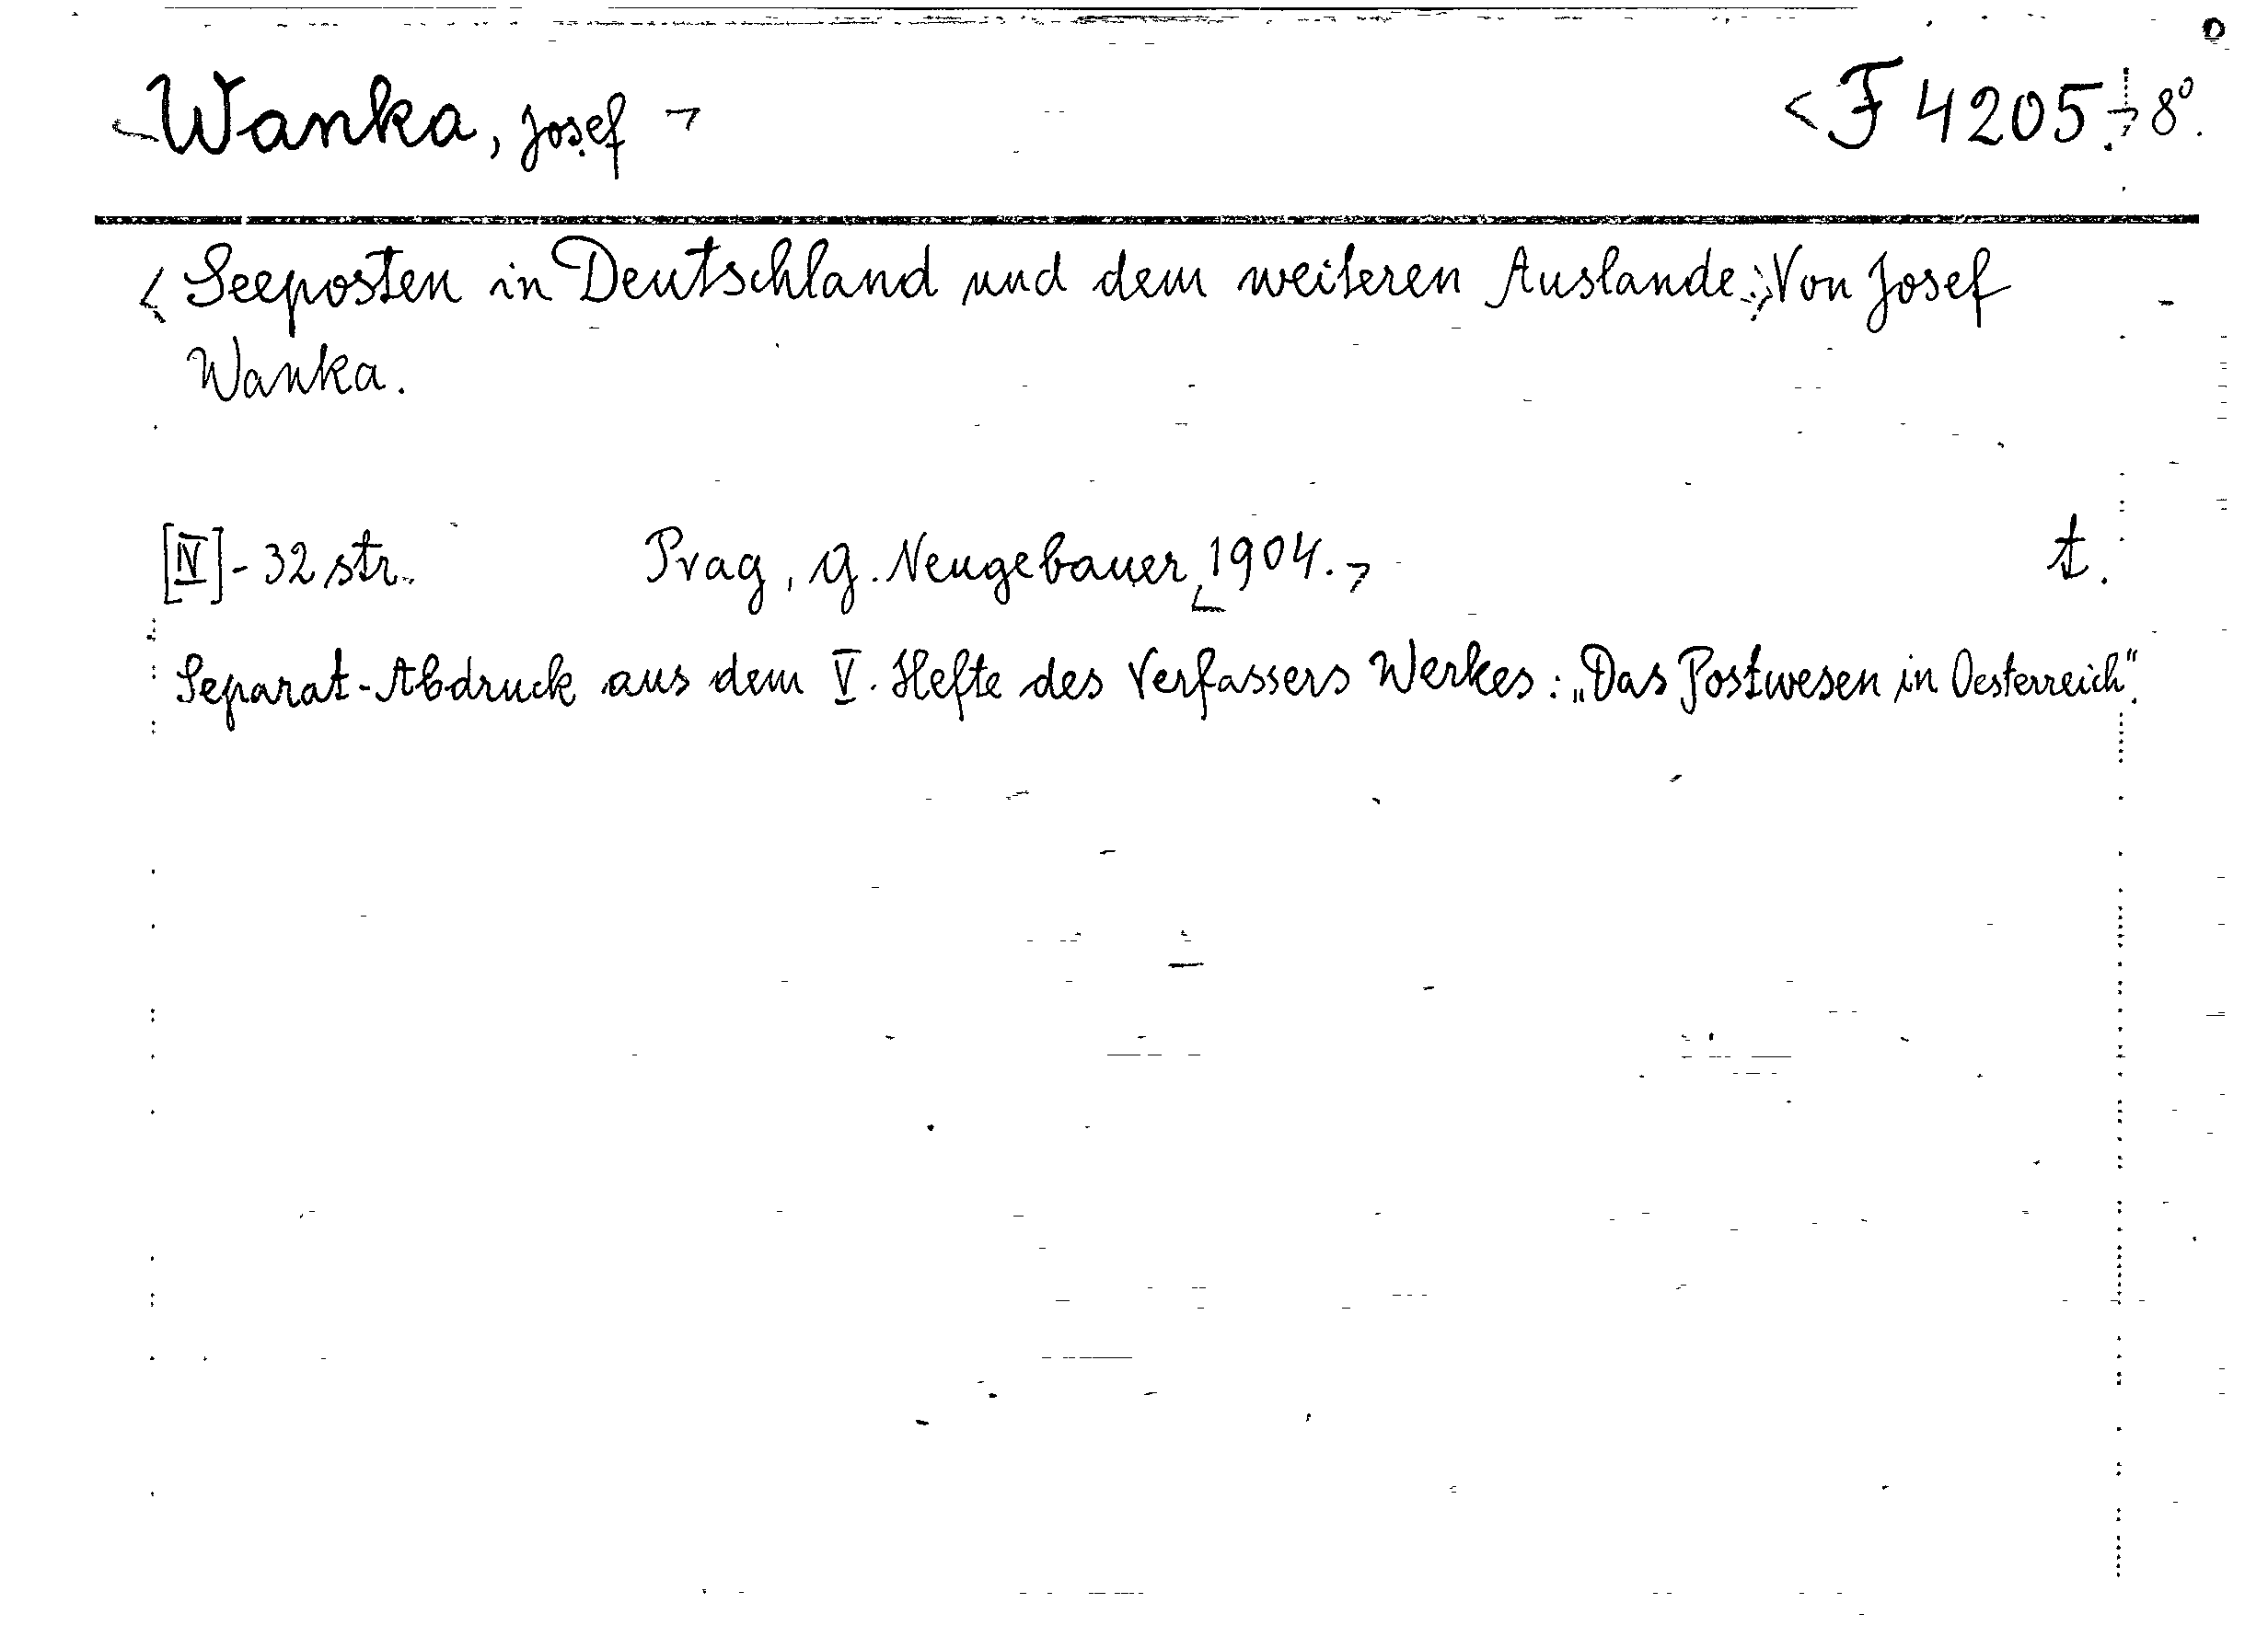 Wanka, Josef
F 4205. 8⁰.
Seeposten in Deutschland und dem weiteren Auslande. Von Josef
Wanka.
[IV] - 32 str. Prag, G. Neugebauer, 1904. t.
Separat-Abdruck aus dem V. Hefte des Verfassers Werkes: „Das Postwesen in Oesterreich".